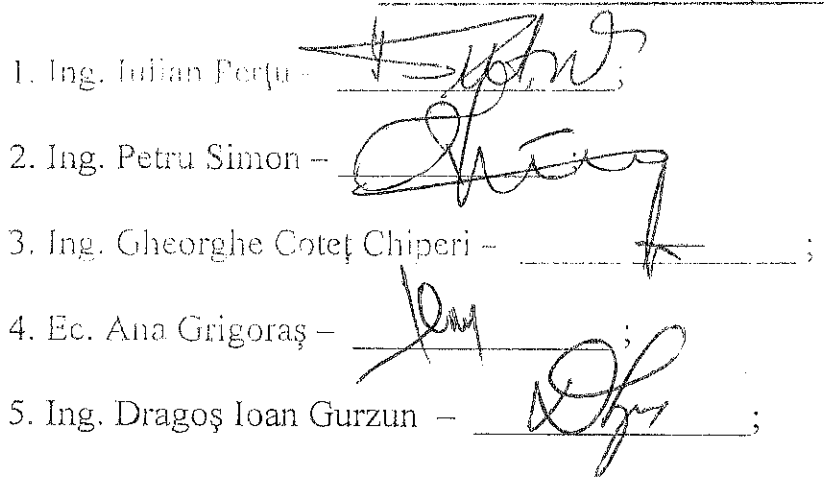 1. Ing. Iulian Perțu - ;
2. Ing. Petru Simon –
3. Ing. Gheorghe Coteț Chiperi – ;
4. Ec. Ana Grigoraș – ;
5. Ing. Dragoș Ioan Gurzun – ;